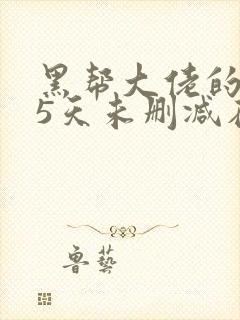 黑帮大佬的
5天未删减
鲁藝